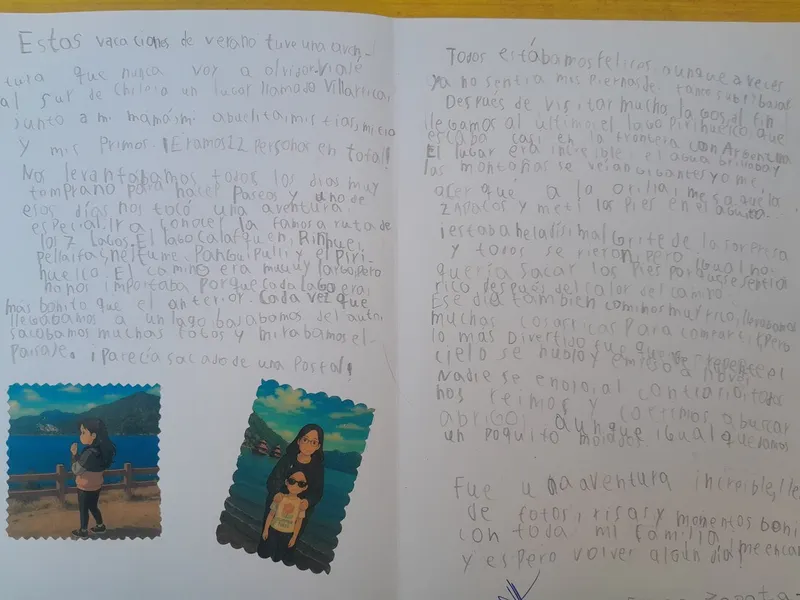 Estas vacaciones de verano tuve una aven-
tura que nunca voy a olvidar. Viajé
al sur de Chile a un lugar llamado Villarrica,
junto a mi mamá, mi abuelita, mis tías, mi tío
y mis primos. ¡Eramos 12 personas en total!
Nos levantabamos todos los dias muy
temprano para hacer paseos y uno de
esos días nos tocó una aventura
especial. Ir a conocer la famosa ruta de
los 7 lagos. El lago Calafquen, Riñihue,
Pellaifa, Neltume, Panguipulli y el Piri-
hueico. El camino era muuuy largo, pero
no nos importaba porque cada lago era
más bonito que el anterior. Cada vez que
llegabamos a un lago bajabamos del auto,
sacabamos muchas fotos y mirabamos el
paisaje. ¡Parecía sacado de una postal!
Todos estábamos felices, aunque a veces
ya no sentía mis piernas de tanto subir y bajar
Después de visitar mucho lagos, al fin
llegamos al último, el lago Pirihueico, que
estaba casi en la frontera con Argentina
El lugar era increíble; el agua brillaba y
las montañas se veían gigantes yo me
acerqué a la orilla, me saque la
zapatos y metí los pies en el agua
¡estaba heladísima! Grite de la sorpresa
y todos se rieron, pero igual no
quería sacar los pies porque se sentía
rico después del calor del camino.
Ese día también comimos muy rico, llevabamos
muchas cosas ricas para compartir, pero
lo más divertido fue que de repente el
cielo se nubló y empezo a llover
Nadie se enojo, al contrario, todos
nos reimos y corrimos a buscar
abrigo, aunque igual quedamos
un poquito mojados
Fue una aventura increible, lle
de fotos, risas y momentos boni
con toda mi familia
y espero volver algún día! me encan
Zapata